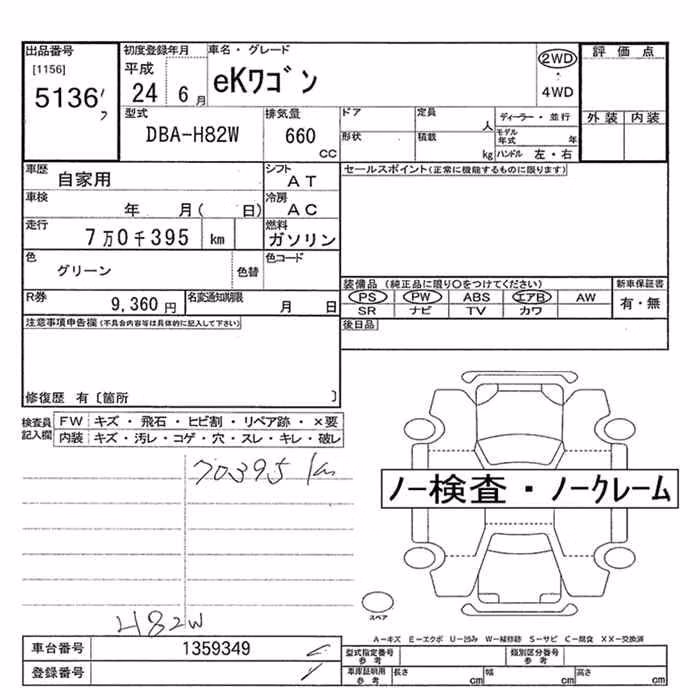 出品番号 初度登録年月 車名・グレード 評価点
[1156] 平成 eKワゴン 2WD
5136 24 6月 ・ 4WD
外装 内装
型式 排気量 ドア 定員 人 ディーラー・並行
DBA-H82W 660 cc 形状 積載 kg モデル年式 年
ハンドル 左・右
車歴 自家用 シフト AT セールスポイント(正常に機能するものに限ります)
車検 年 月( 日) 冷房 AC
走行 7万0千395 km 燃料 ガソリン
色 グリーン 色替 色コード
装備品 (純正品に限り○をつけてください) 新車保証書
R券 9,360円 名変通知期限 月 日 PS PW ABS エアB AW 有・無
SR ナビ TV カワ
注意事項申告欄(不具合内容等は具体的に記入して下さい) 後日品
修復歴 有〔箇所 〕
検査員記入欄 FW キズ・飛石・ヒビ割・リペア跡・×要
内装 キズ・汚レ・コゲ・穴・スレ・キレ・破レ
70395 km
ノー検査・ノークレーム
スペア
H82W
A−キズ E−エクボ U−凹み W−補修跡 S−サビ C−腐食 XX−交換済
車台番号 1359349 型式指定番号 参考 類別区分番号 参考
登録番号 車庫証明用 参考 長さ cm 幅 cm 高さ cm